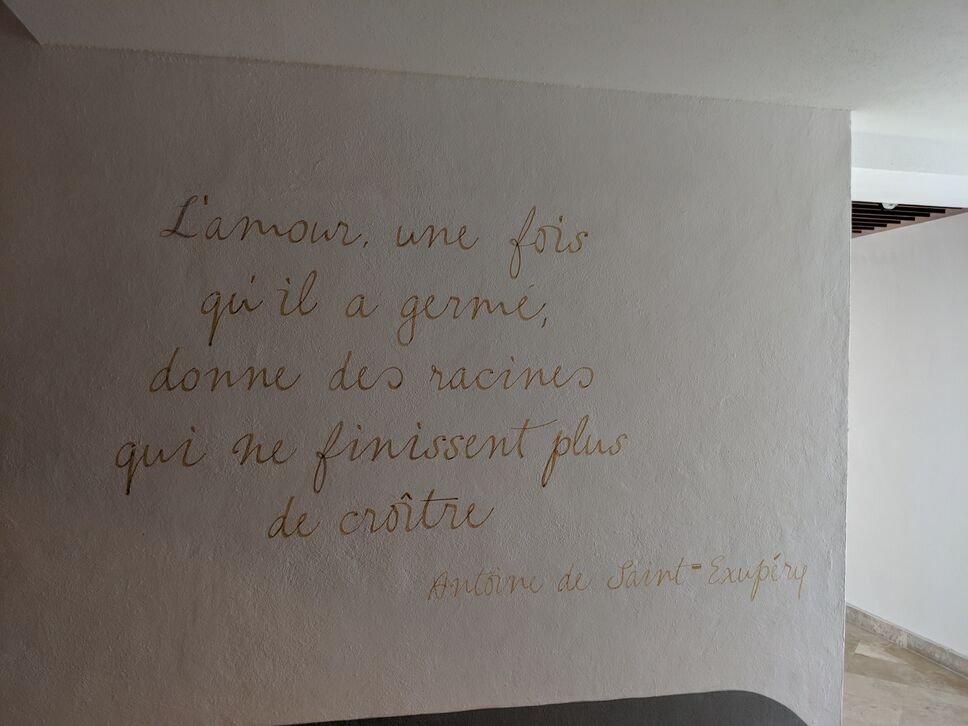 L'amour, une fois
qu'il a germé,
donne des racines
qui ne finissent plus
de croître
Antoine de Saint-Exupéry